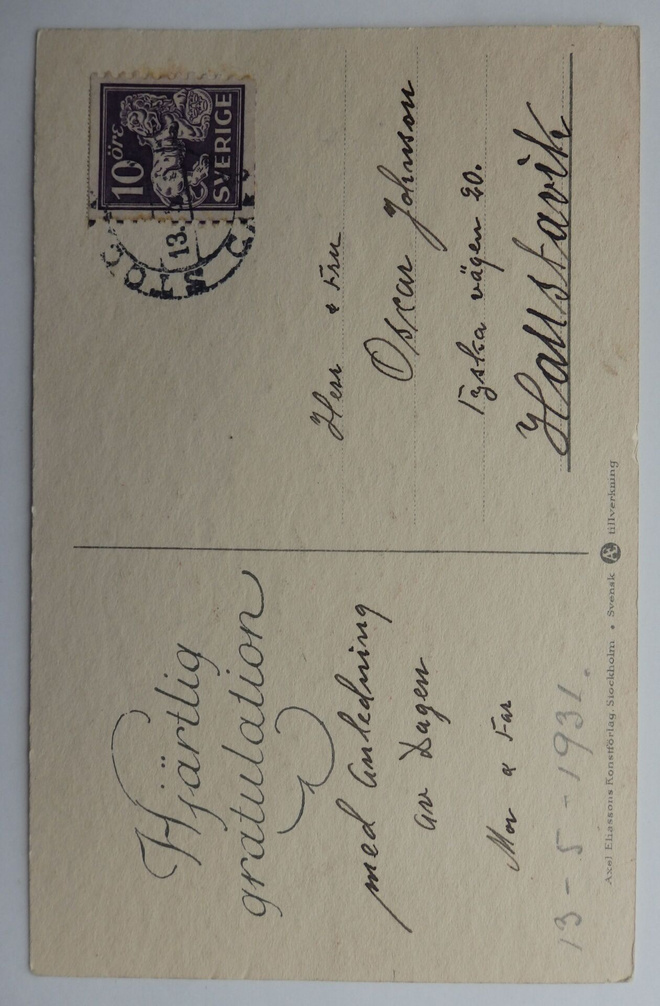 Hjärtlig
gratulation
med Anledning
av Dagen
Mor & Far
13-5-1931.
10 öre
SVERIGE
13.
Herr & Fru
Oscar Johnson
Tyska vägen 20.
Hallstavik
Axel Eliassons Konstförlag, Stockholm • Svensk Æ tillverkning